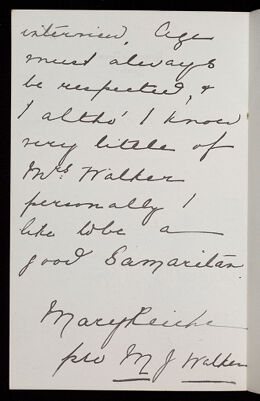 interview, Age
must always
be respected, &
I altho' I know
very little of
Mrs. Walker
personally I
like to be a
good Samaritan
Mary Reiche
pro M J Walker